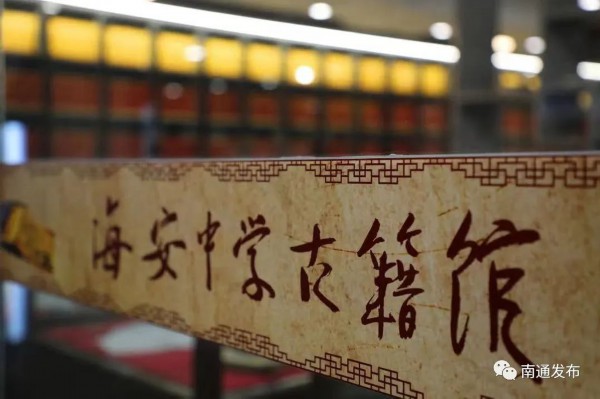 海安中学古籍馆
南通发布